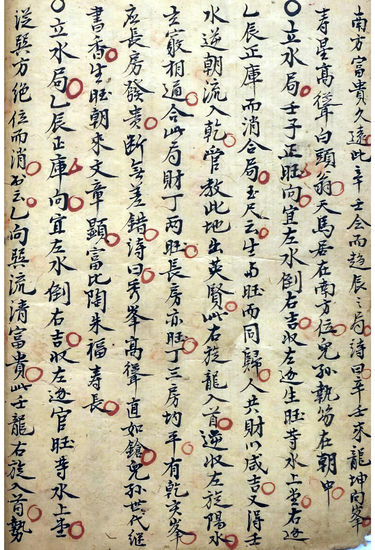 南方富貴久遠此辛壬会而趋辰之局诗曰辛壬來龍坤向峯
寿星高聳白頭翁天馬居在南方位兒孫執笏在朝中
〇立水局壬子正旺向宜左水倒右吉収左边生旺等水上堂右边
乙辰正庫而消合局玉尺云生与旺而同歸人共財以咸吉又得壬
水逆朝流入乾管教此地出英賢此右旋龍入首逆収左旋陽水
玄竅相通合此局財丁两旺長房亦旺丁三房均平有乾亥峯
应長房發贵断無差錯诗曰秀峯高聳直如鎗兒孫世代継
書香生旺朝來文章顕富比陶朱福寿長
〇立水局乙辰正庫向宜左水倒右吉収左边官旺等水上堂
從巽方绝位而消书云乙向巽流清富貴此壬龍右旋入首勢